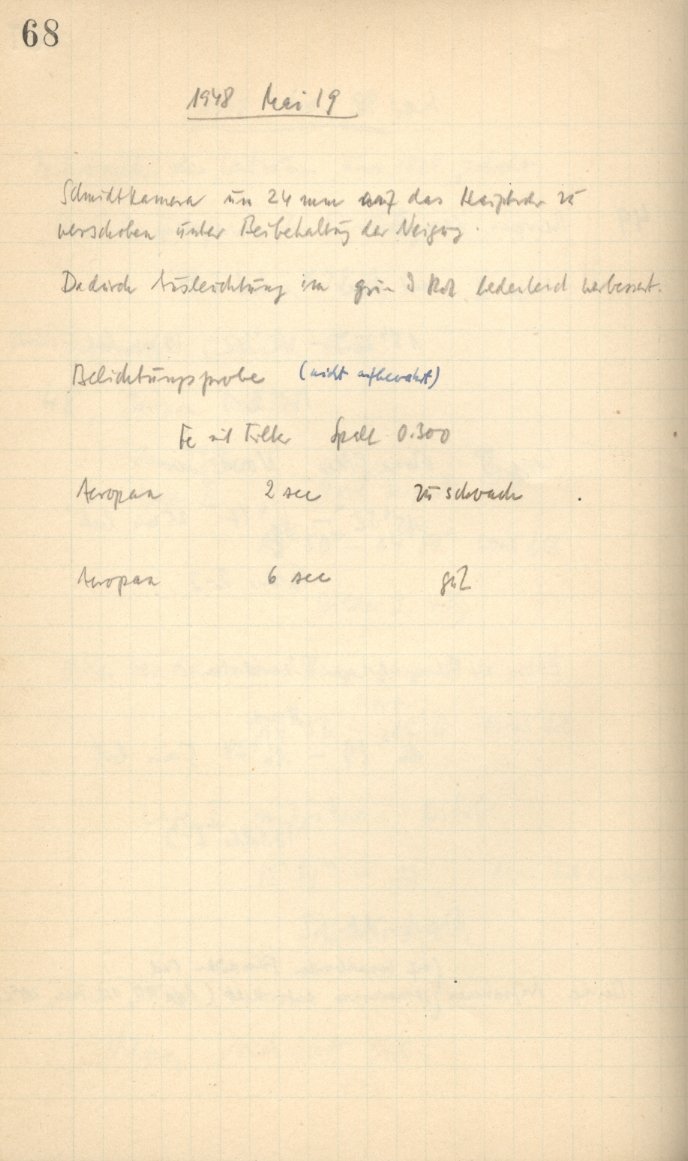 68
1948 Mai 19
Schmidtkamera um 24 mm auf das Hauptrohr zu
verschoben unter Beibehaltung der Neigung.
Dadurch Ausleuchtung im grün & Rot bedeutend verbessert.
Belichtungsprobe (nicht aufbewahrt)
Fe mit Filter Spalt 0.300
Aeropan 2 sec zu schwach .
Aeropan 6 sec gut